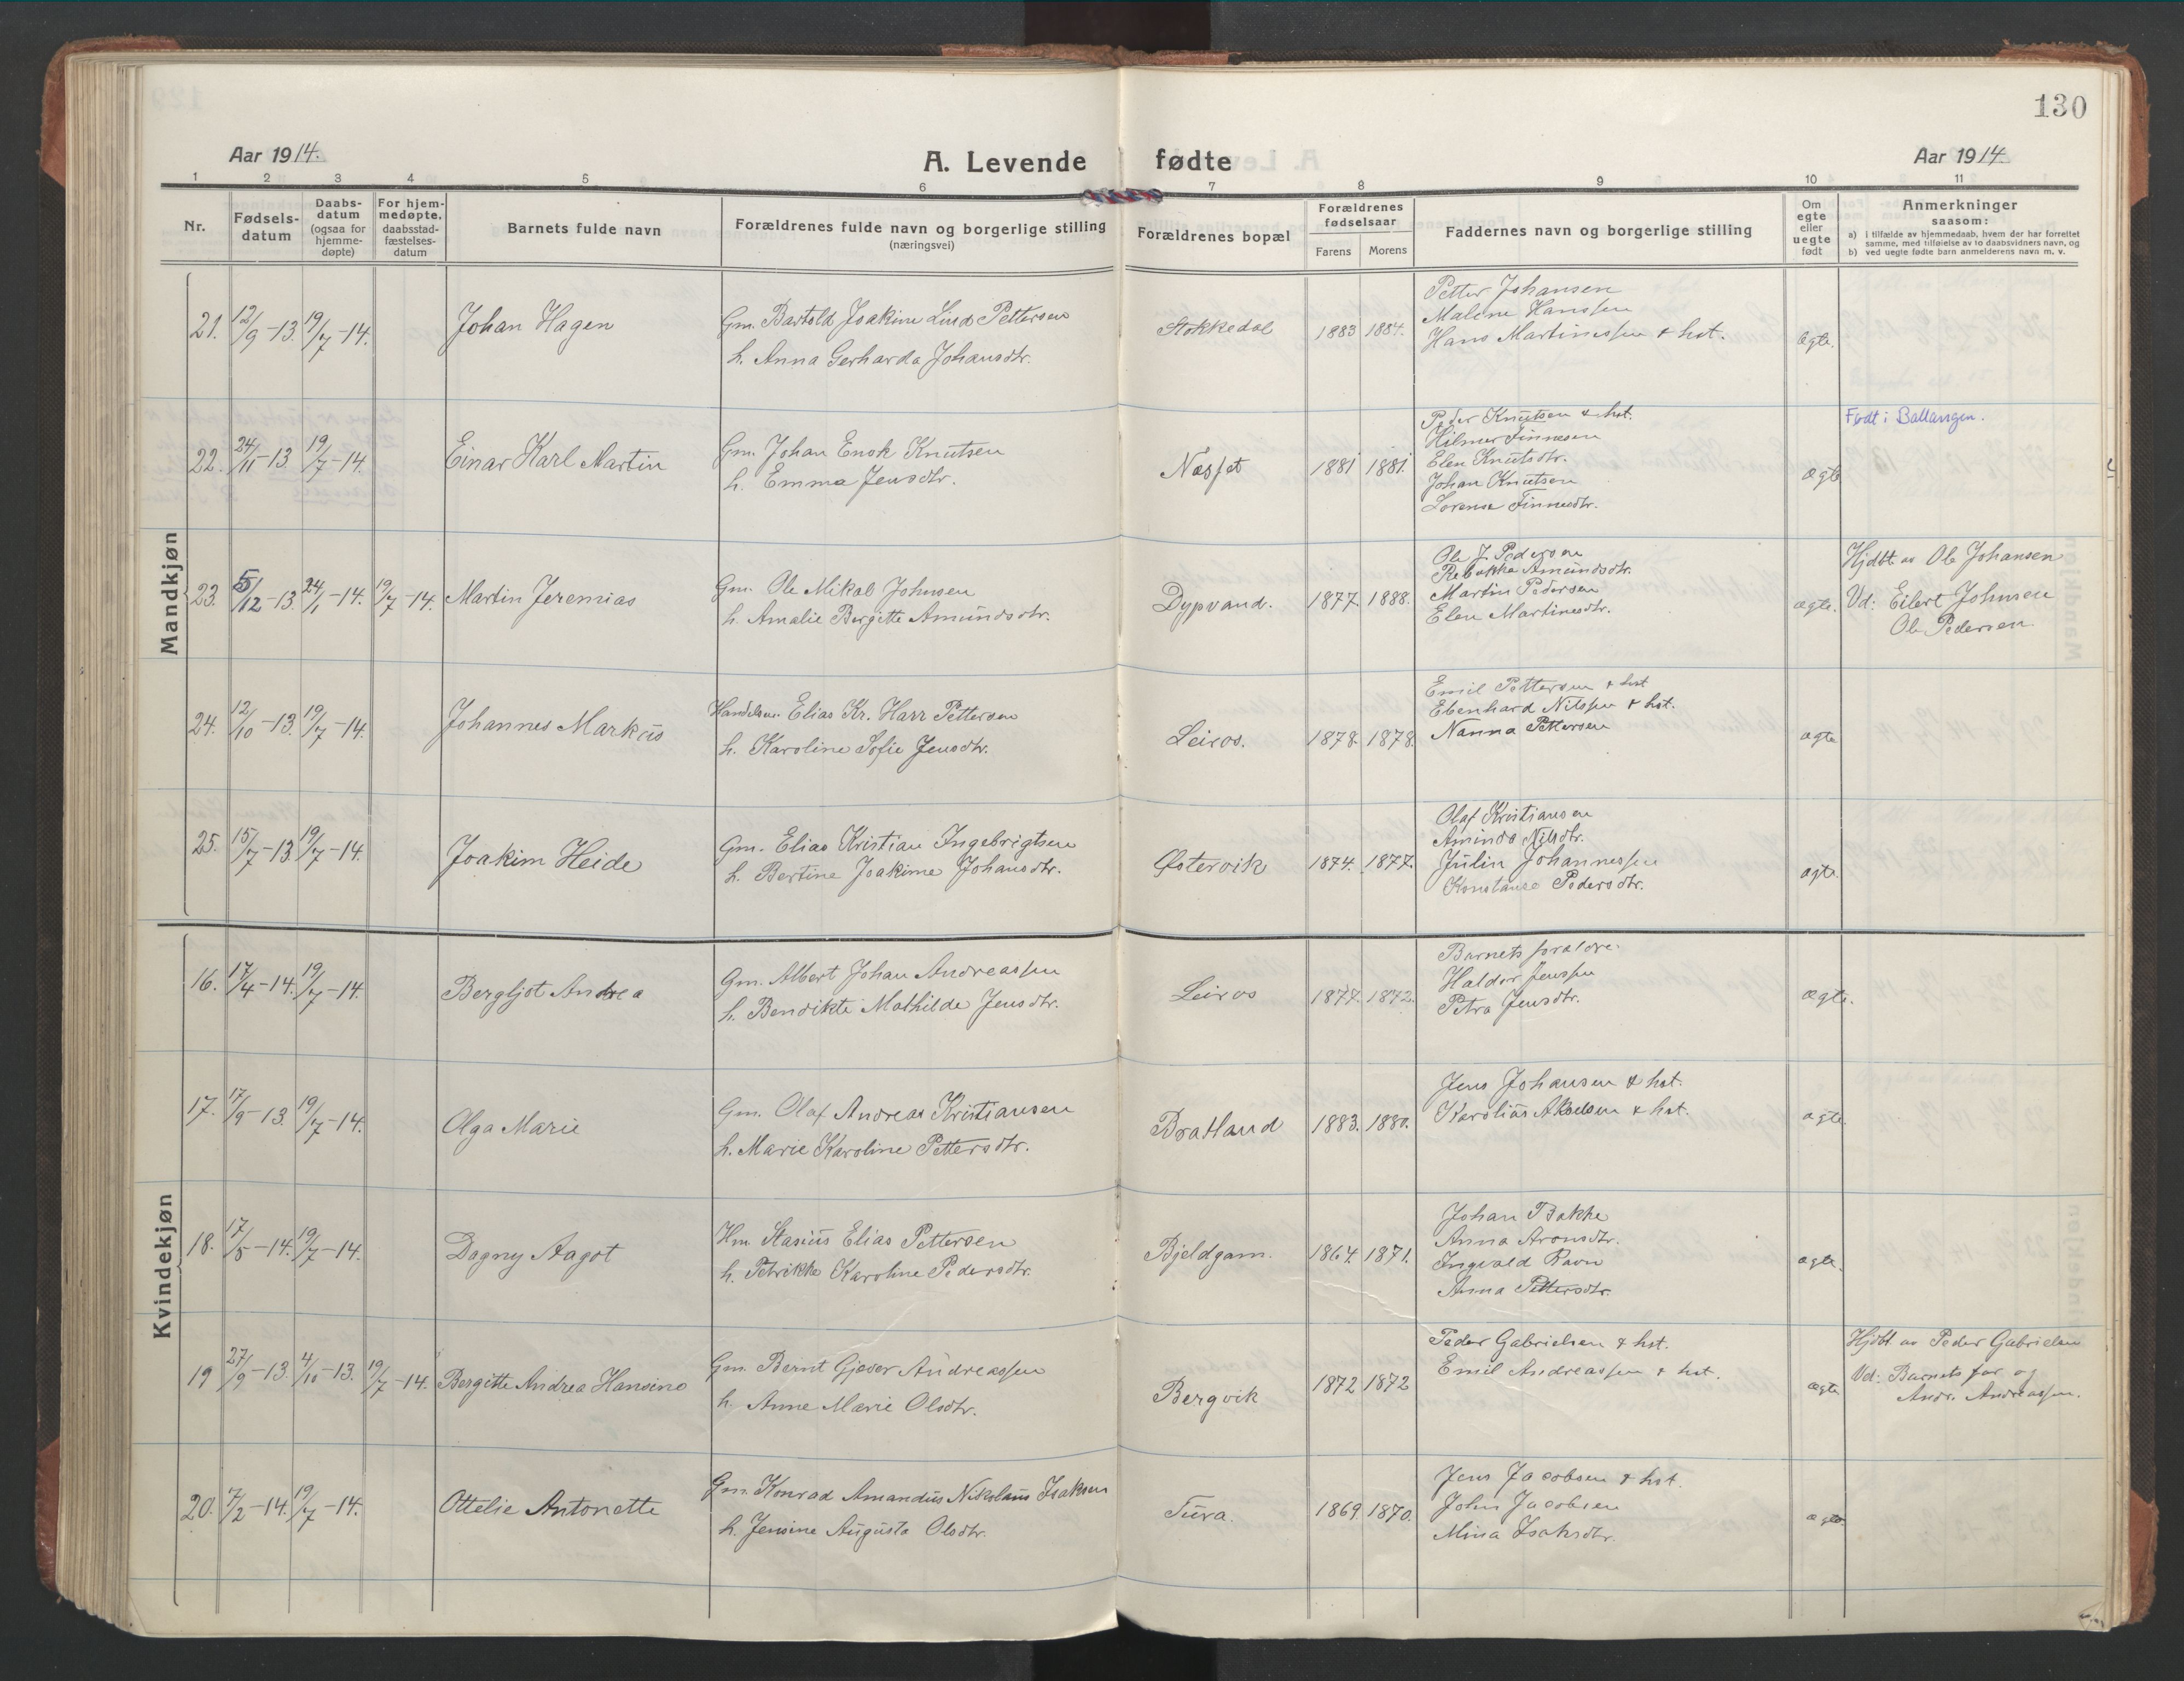 130
Aar 1914.
A. Levende fødte
Aar 1914.
1 2 3 4 5 6 7 8 9 10 11
Nr.
Fødsels-
datum
Daabs-
datum
(ogsaa for
hjemme-
døpte)
For hjem-
medøpte.
daabsstad-
fæstelses-
datum
Barnets fulde navn
Forældrenes fulde navn og borgerlige stilling
(næringsvei)
Forældrenes bopæl
Forældrenes
fødselsaar
Farens Morens
Faddernes navn og borgerlige stilling
Om
egte
eller
uegte
født
Anmerkninger
saasom:
a) i tilfælde av hjemmedaab, hvem der har forrettet
samme, med tilføielse av to daabsvidners navn, og
b) ved uegte fødte barn anmelderens navn m. v.
Mandkjøn
21. 12/9-13. 19/7-14. Johan Hagen
Gm. Bartold Joakim Lind Pettersen
h. Anna Gerharda Johansdtr.
Stokkedal 1883 1884.
Petter Johansen
Malene Hanssen
Hans Martinessen & hst.
Ægte.
22. 24/11-13. 19/7-14. Einar Karl Martin
Gm. Johan Enok Knutsen
h. Emma Jensdtr.
Næsset 1881 1881.
Peder Knutsen & hst.
Hilmer Finnesen
Elen Knutsdtr.
Johan Knutsen
Lorense Finnesdtr.
Ægte
Født i Ballangen.
23. 5/12-13. 24/1-14. 19/7-14. Martin Jeremias
Gm. Ole Mikal Johnsen
h. Amalie Bergitte Amundsdtr.
Dypvand. 1877. 1888.
Ole J. Pedersen
Rebekka Amundsdtr.
Martin Pedersen
Elen Martinesdtr.
ægte.
Hjdbt av Ole Johansen
Vd: Eilert Johnsen
Ole Pedersen
24. 12/10-13. 19/7-14. Johannes Markus
Handelsm. Elias Kr. Harr Pettersen
h. Karoline Sofie Jensdtr.
Leiros. 1878. 1878.
Emil Pettersen & hst
Ebenhard Nilssen & hst.
Nanna Pettersen
ægte
25. 15/7-13. 19/7-14. Joakim Heide
Gm. Elias Kristian Ingebrigtsen
h. Bertine Joakime Johansdtr.
Østervik 1874. 1877.
Olaf Kristiansen
Aminda Nilsdtr.
Julin Johannessen
Konstanse Pedersdtr.
ægte.
Kvindekjøn
16. 17/4-14. 19/7-14. Bergljot Andrea
Gm. Albert Johan Andreassen
h. Bendikte Mathilde Jensdtr.
Leiros 1877. 1872.
Barnets forældre.
Haldor Jenssen
Petra Jensdtr.
ægte.
17. 17/9-13. 19/7-14. Olga Marie
Gm. Olaf Andreas Kristiansen
h. Marie Karoline Pettersdtr.
Bratland 1883. 1880.
Jens Johansen & hst.
Karolius Akselsen & hst.
ægte
18. 17/5-14. 19/7-14. Dagny Aagot
Hm. Stasius Elias Pettersen
h. Petrikke Karoline Pedersdtr.
Bjeldgam. 1864. 1871.
Johan Bakke
Anna Aronsdtr.
Ingvald Ravn
Anna Pettersdtr.
ægte.
19 27/9-13. 4/10-13. 19/7-14. Bergitte Andrea Hansine
Gm. Bernt Gjæver Andreassen
h. Anne Marie Olsdtr.
Bergvik 1872 1872
Peder Gabrielsen & hst.
Emil Andreassen & hst.
ægte
Hjdbt av Peder Gabrielsen
Vd: Barnets far og
Andr. Andreassen.
20. 7/2-14. 19/7-14. Ottelie Antonette
Gm. Konrad Amandus Nikolaus Isaksen
h. Jensine Augusta Olsdtr.
Tura. 1869. 1870.
Jens Jacobsen & hst.
John Jacobsen
Mina Isaksdtr.
ægte.